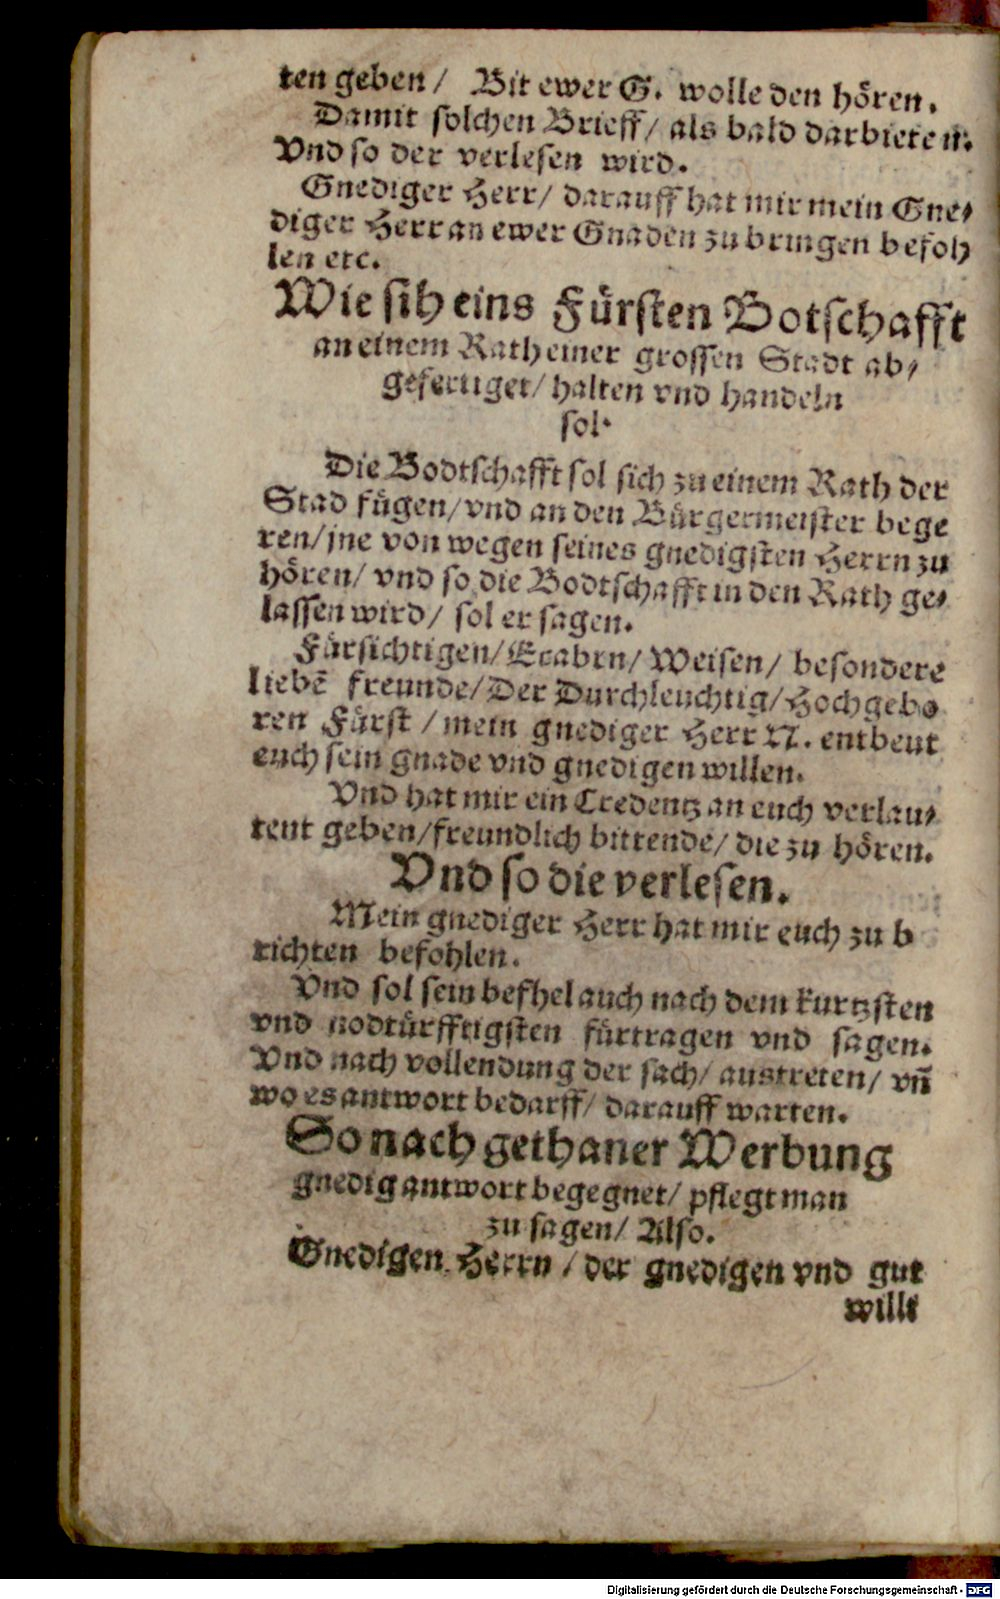 ten geben / Bit ewer G. wolle den hören.
Damit solchen Brieff / als bald darbieten.
Vnd so der verlesen wird.
Gnediger Herr / darauff hat mir mein Gne-
diger Herr an ewer Gnaden zu bringen befoh
len etc.
Wie sih eins Fürsten Botschafft
an einem Rath einer grossen Stadt ab-
gefertiget / halten vnd handeln
sol.
Die Bodtschafft sol sich zu einem Rath der
Stad fügen / vnd an den Bürgermeister bege
ren / jne von wegen seines gnedigsten Herrn zu
hören / vnd so die Bodtschafft in den Rath ge-
lassen wird / sol er sagen.
Fürsichtigen / Erabrn / Weisen / besondere
liebē freunde / Der Durchleuchtig / Hochgebo
ren Fürst / mein gnediger Herr N. entbeut
euch sein gnade vnd gnedigen willen.
Vnd hat mir ein Credentz an euch verlau-
tent geben / freundlich bittende / die zu hören.
Vnd so die verlesen.
Mein gnediger Herr hat mir euch zu b
richten befohlen.
Vnd sol sein befhel auch nach dem kurtzsten
vnd nodtürfftigsten fürtragen vnd sagen.
Vnd nach vollendung der sach / austreten / vñ
wo es antwort bedarff / darauff warten.
So nach gethaner Werbung
gnedig antwort begegnet / pflegt man
zu sagen / Also.
Gnedigen Herrn / der gnedigen vnd gut
willi
Digitalisierung gefördert durch die Deutsche Forschungsgemeinschaft - DFG